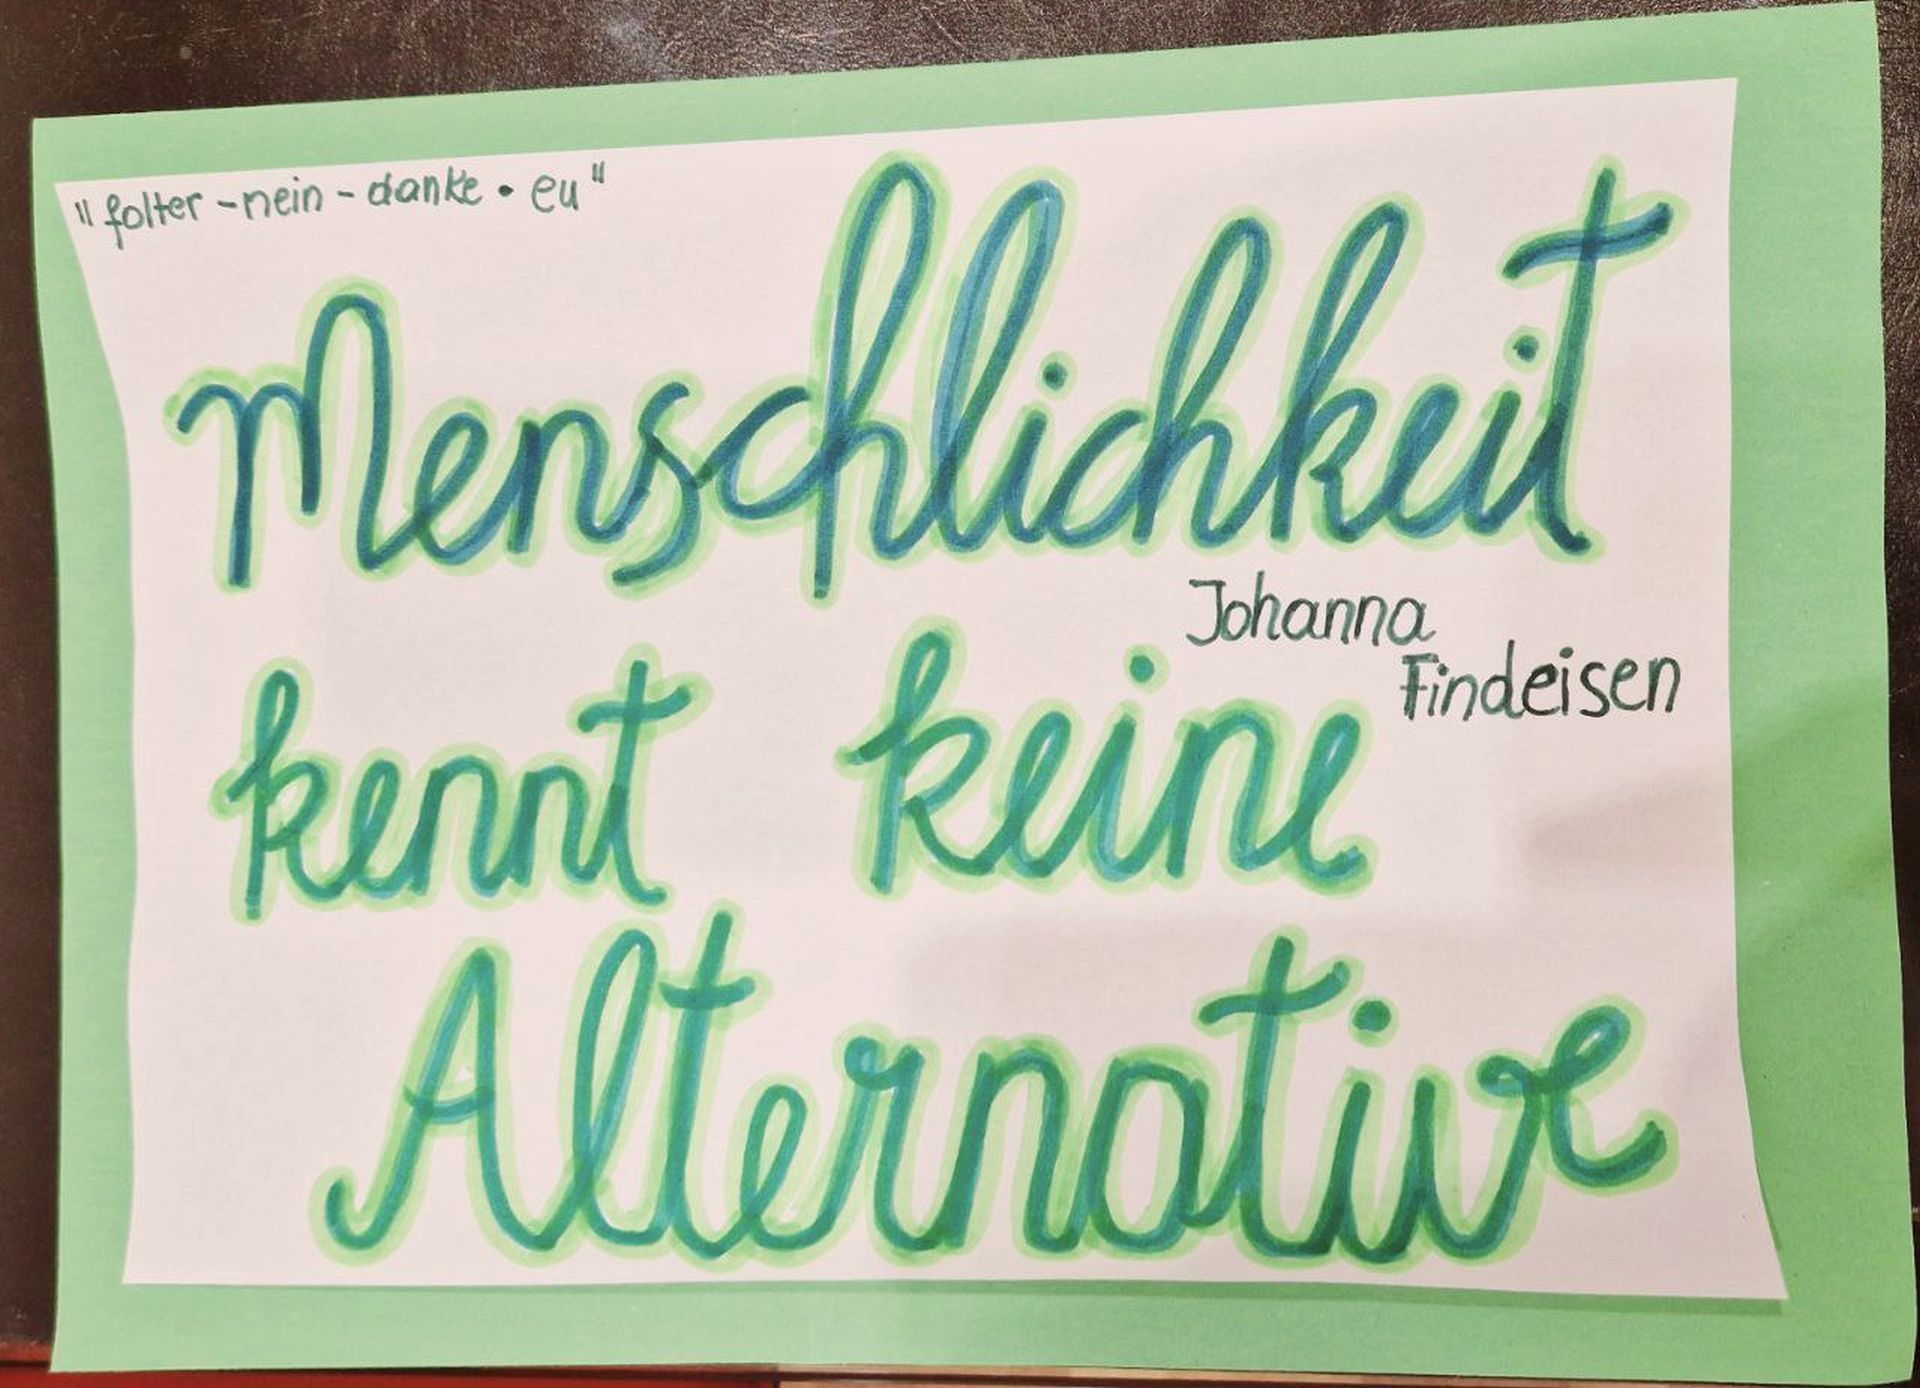 "folter-nein-danke.eu"
Menschlichkeit
Johanna
Findeisen
kennt keine
Alternative